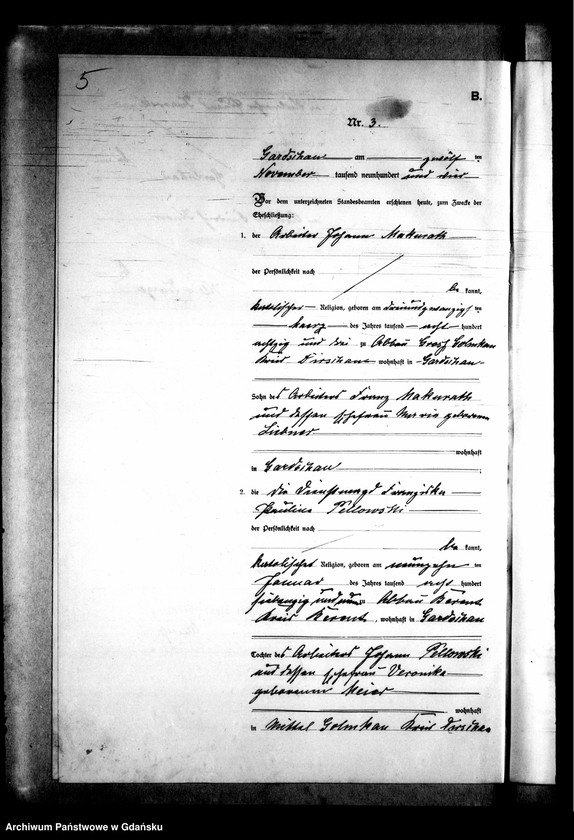 5
B.
Nr. 3.
Gardschau am zwölf ten
November tausend neunhundert und vier
Vor dem unterzeichneten Standesbeamten erschienen heute, zum Zwecke der
Eheschließung:
1. der Arbeiter Johann Makurath
der Persönlichkeit nach
be kannt,
katolischer Religion, geboren am dreiundzwanzigs ten
März des Jahres tausend acht hundert
achtzig und drei zu Abbau Gross Golmkau
Kreis Dirschau wohnhaft in Gardschau
Sohn des Arbeiters Franz Makurath
und dessen Ehefrau Maria geborenen
wohnhaft
in Gardschau
2. die Die Dienstmagd Franziska
Paulina Pellowski
der Persönlichkeit nach
be kannt,
katolischer Religion, geboren am neunzehn ten
Januar des Jahres tausend acht hundert
siebenzig und zu Abbau Berent
Kreis Berent, wohnhaft in Gardschau
Tochter des Arbeiters Johann Pellowski
und dessen Ehefrau Veronika
geborenen Meier
wohnhaft
in Mittel Golmkau Kreis Dirschau
Archiwum Państwowe w Gdańsku